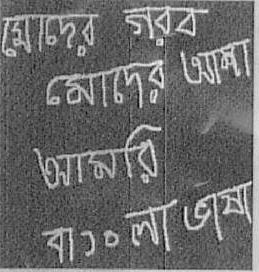 মোদের গরব
মোদের আশা
আমরি
বাংলা ভাষা